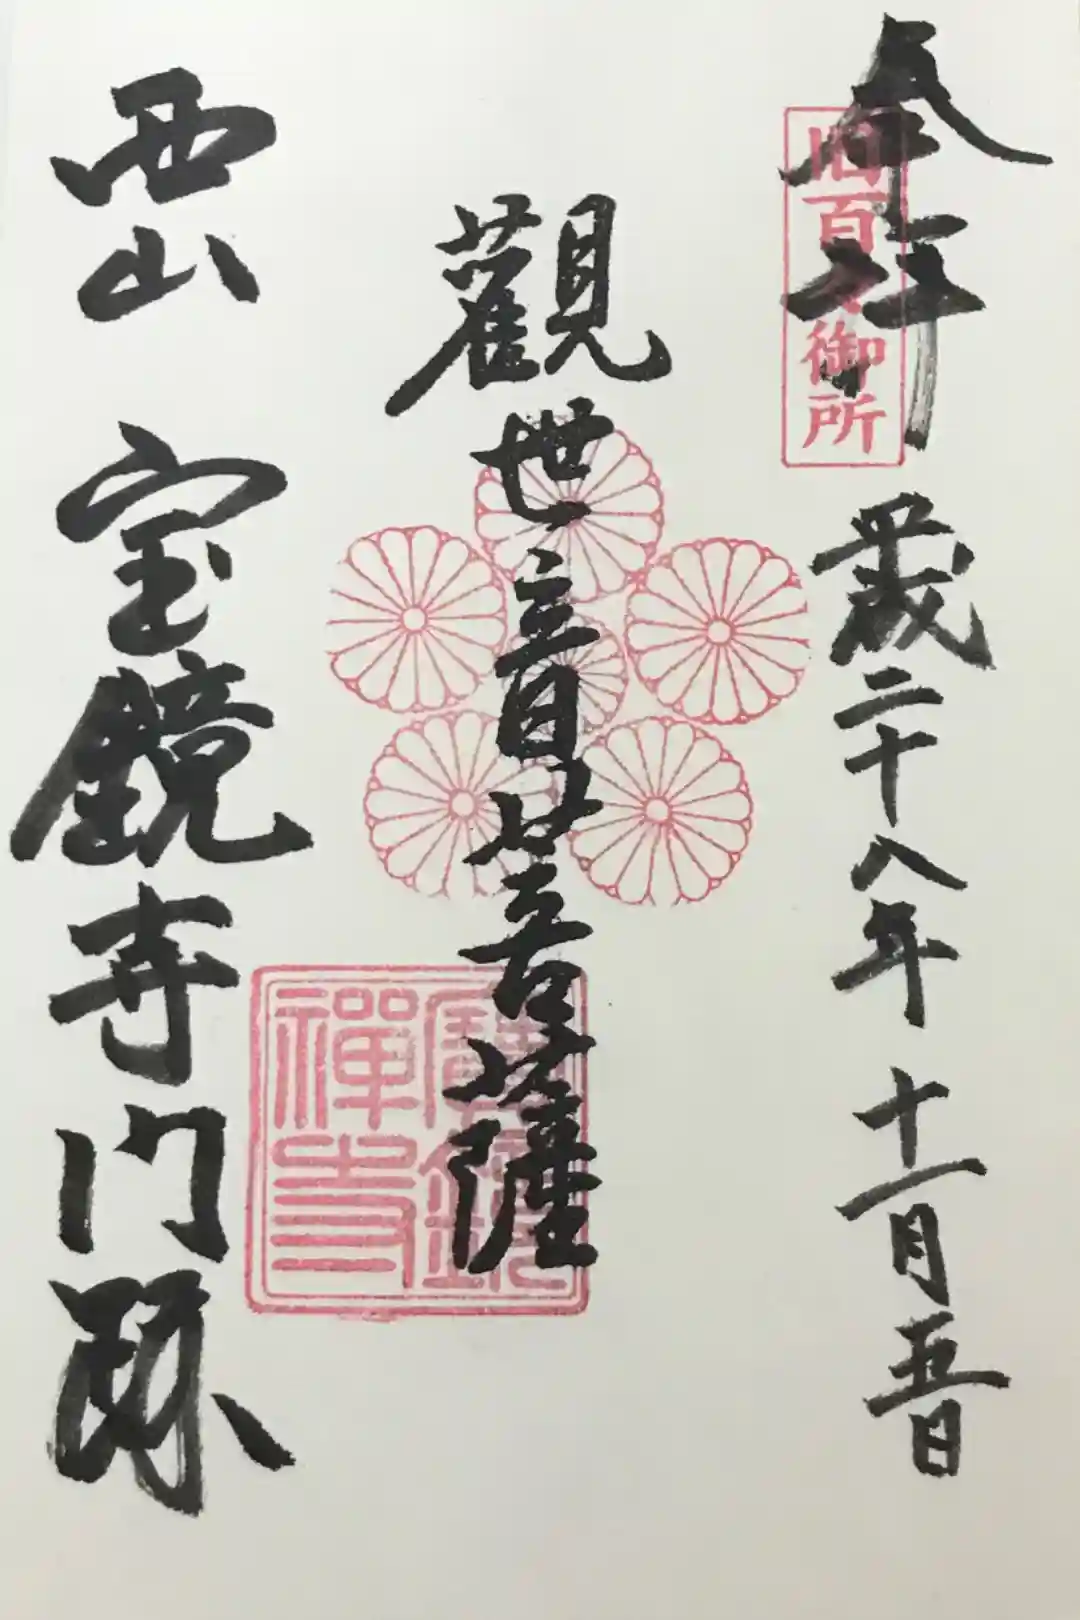 奉拝
旧百々御所
歳二十八年十一月五日
觀世音菩薩
寶鏡禅寺
西山宝鏡寺門跡